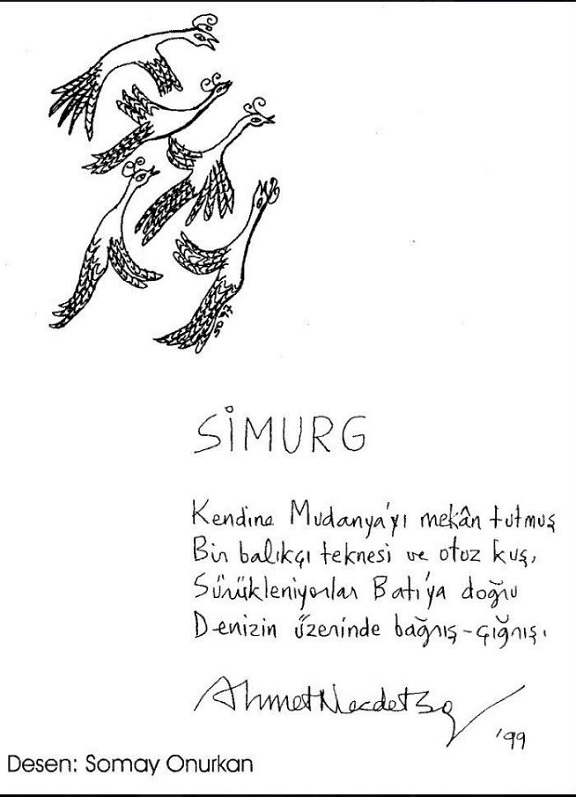 SİMURG
Kendine Mudanya'yı mekân tutmuş
Bir balıkçı teknesi ve otuz kuş,
Sürükleniyorlar Batı'ya doğru
Denizin üzerinde bağrış-çığrış.
Ahmet Necdet
'99
Desen: Somay Onurkan